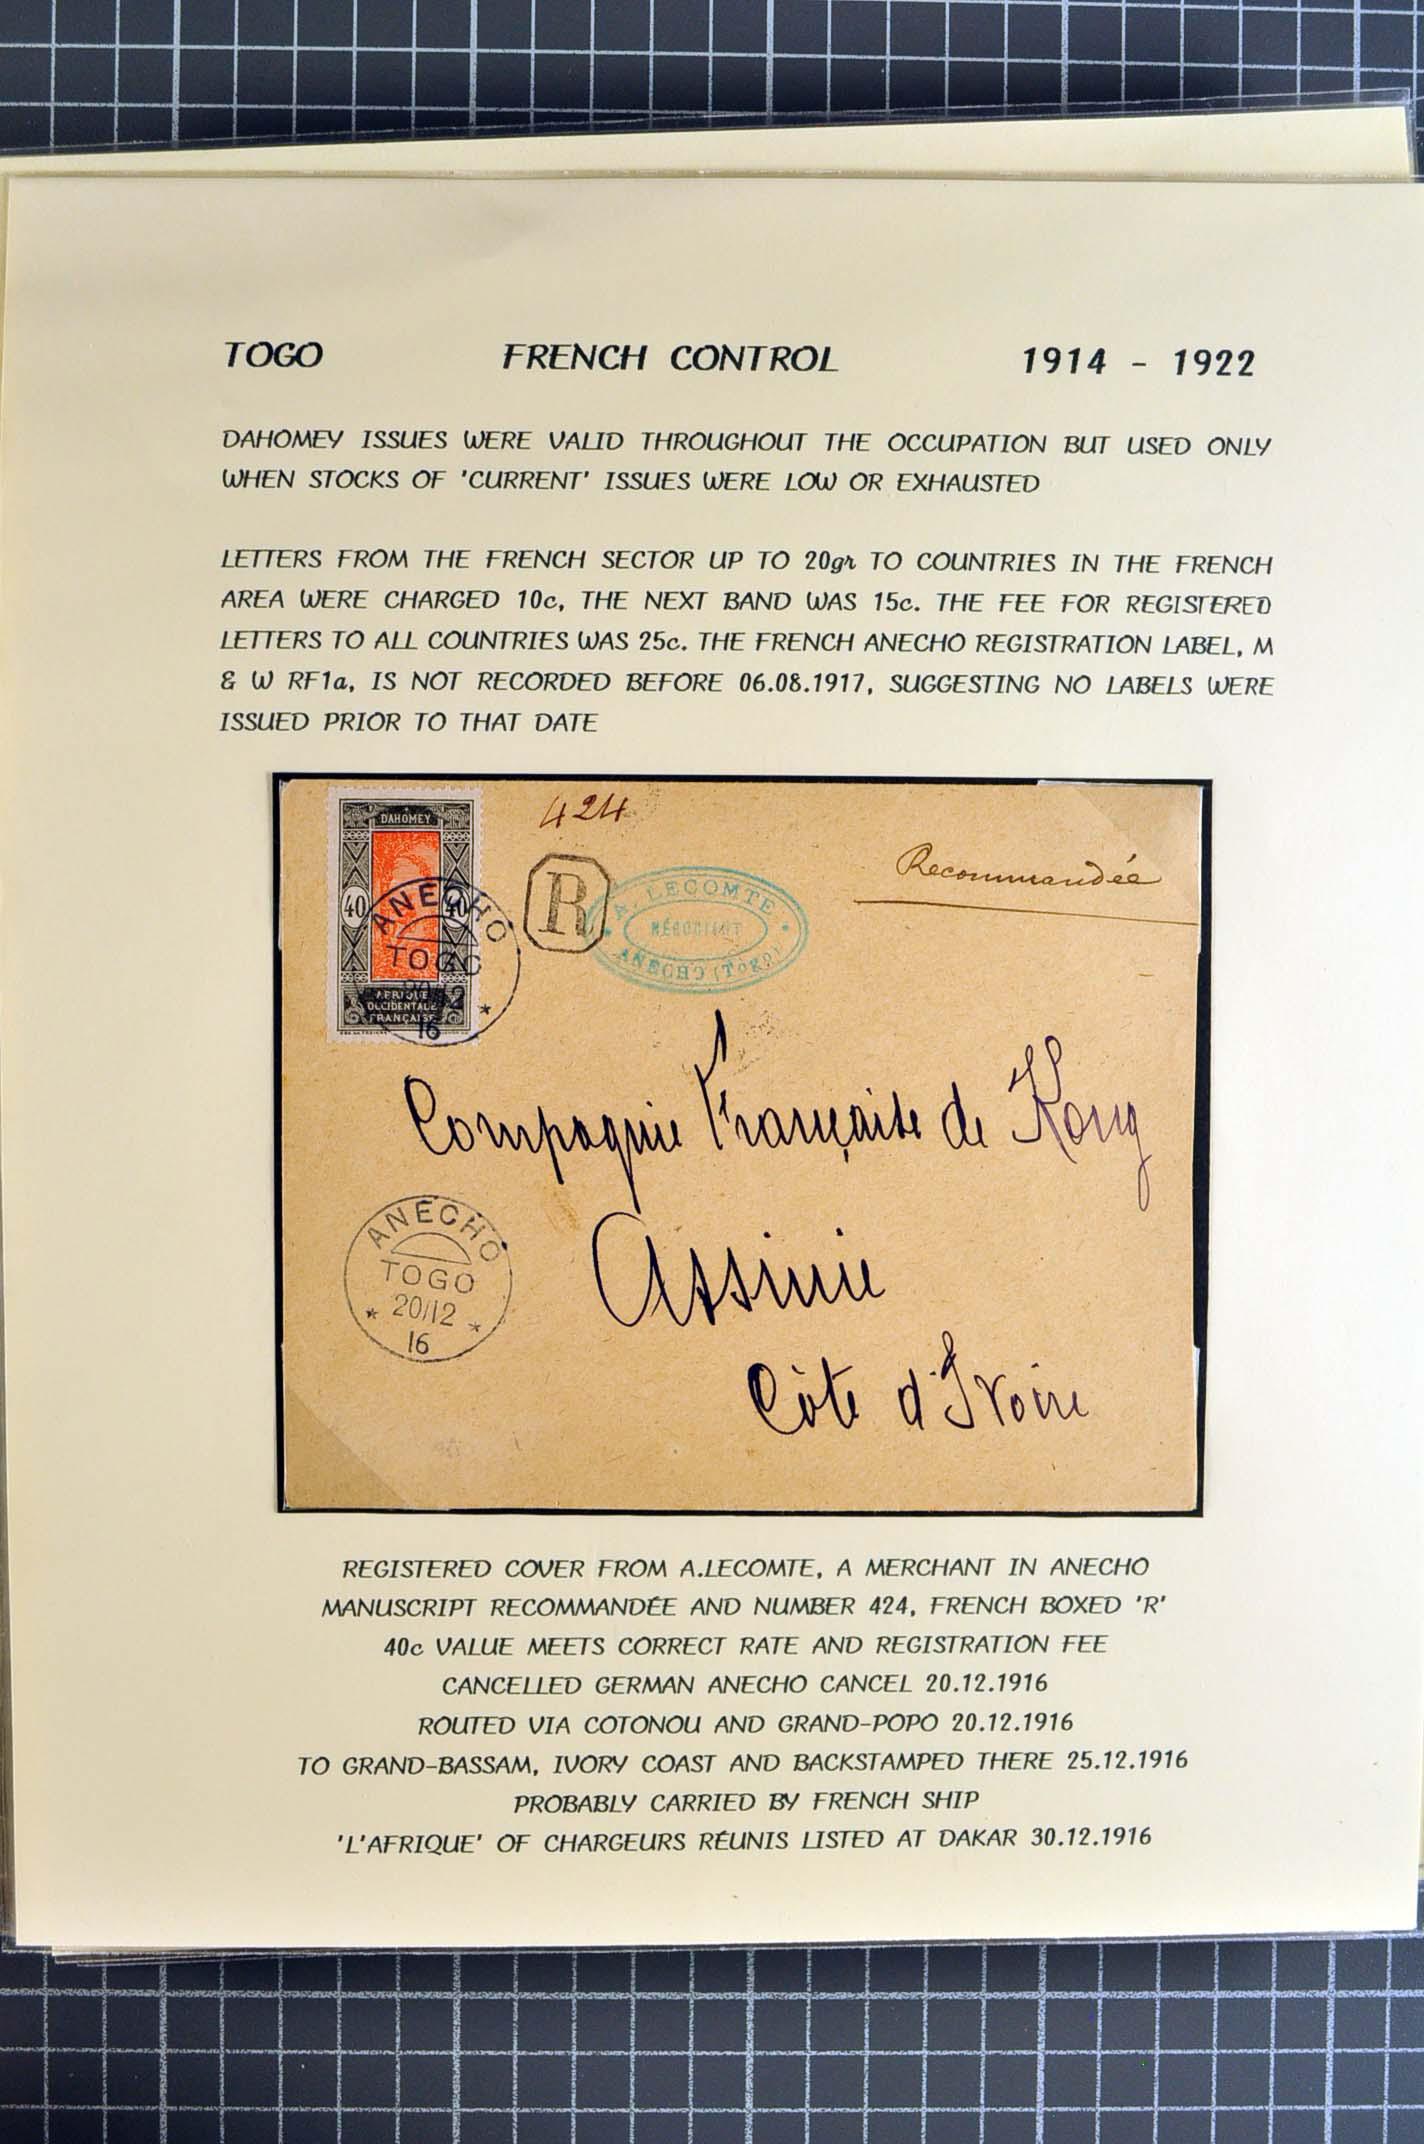 TOGO FRENCH CONTROL 1914 - 1922
DAHOMEY ISSUES WERE VALID THROUGHOUT THE OCCUPATION BUT USED ONLY
WHEN STOCKS OF 'CURRENT' ISSUES WERE LOW OR EXHAUSTED
LETTERS FROM THE FRENCH SECTOR UP TO 20gr TO COUNTRIES IN THE FRENCH
AREA WERE CHARGED 10c, THE NEXT BAND WAS 15c. THE FEE FOR REGISTERED
LETTERS TO ALL COUNTRIES WAS 25c. THE FRENCH ANECHO REGISTRATION LABEL, M
& W RF1a, IS NOT RECORDED BEFORE 06.08.1917, SUGGESTING NO LABELS WERE
ISSUED PRIOR TO THAT DATE
DAHOMEY
40 40
AFRIQUE
OCCIDENTALE
FRANÇAISE
ANECHO
TOGO
12
16
424
R
A. LECOMTE
NÉGOCIANT
ANECHO (TOGO)
Recommandée
Compagnie Française de Kong
Assinie
Côte d'Ivoire
ANECHO
TOGO
* 20/12 *
16
REGISTERED COVER FROM A.LECOMTE, A MERCHANT IN ANECHO
MANUSCRIPT RECOMMANDÉE AND NUMBER 424, FRENCH BOXED 'R'
40c VALUE MEETS CORRECT RATE AND REGISTRATION FEE
CANCELLED GERMAN ANECHO CANCEL 20.12.1916
ROUTED VIA COTONOU AND GRAND-POPO 20.12.1916
TO GRAND-BASSAM, IVORY COAST AND BACKSTAMPED THERE 25.12.1916
PROBABLY CARRIED BY FRENCH SHIP
'L'AFRIQUE' OF CHARGEURS RÉUNIS LISTED AT DAKAR 30.12.1916